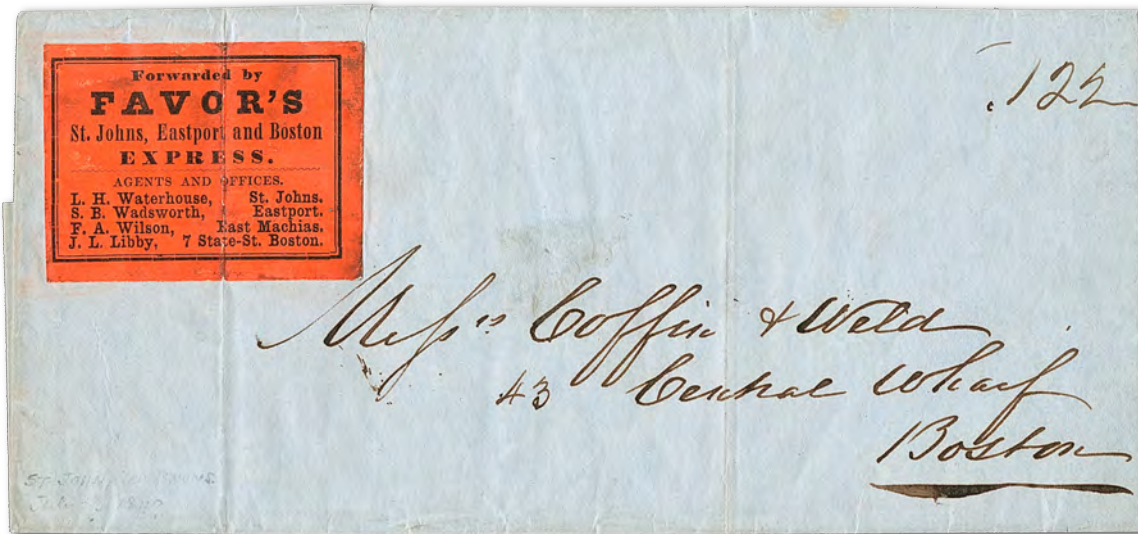 Forwarded by
FAVOR'S
St. Johns, Eastport and Boston
EXPRESS.
AGENTS AND OFFICES.
L. H. Waterhouse, St. Johns.
S. B. Wadsworth, Eastport.
F. A. Wilson, East Machias.
J. L. Libby, 7 State-St. Boston.
.12½
Messrs Coffin & Weld
43 Central Wharf
Boston
ST. JOHN
July